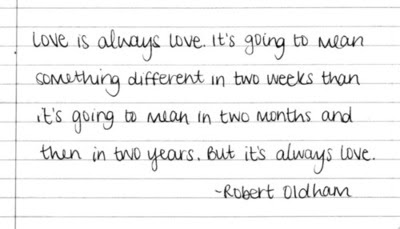 Love is always love. It's going to mean
something different in two weeks than
it's going to mean in two months and
then in two years. But it's always love.
~Robert Oldham